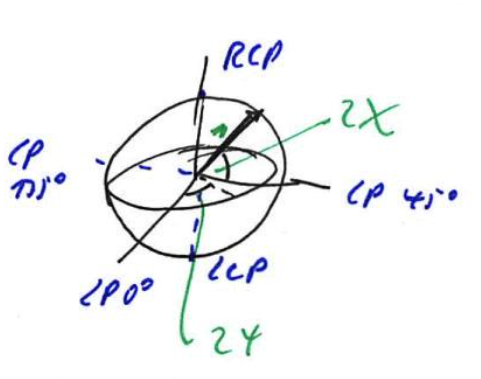 RCP
2χ
LP
135°
LP 45°
LP0°
LCP
2Ψ